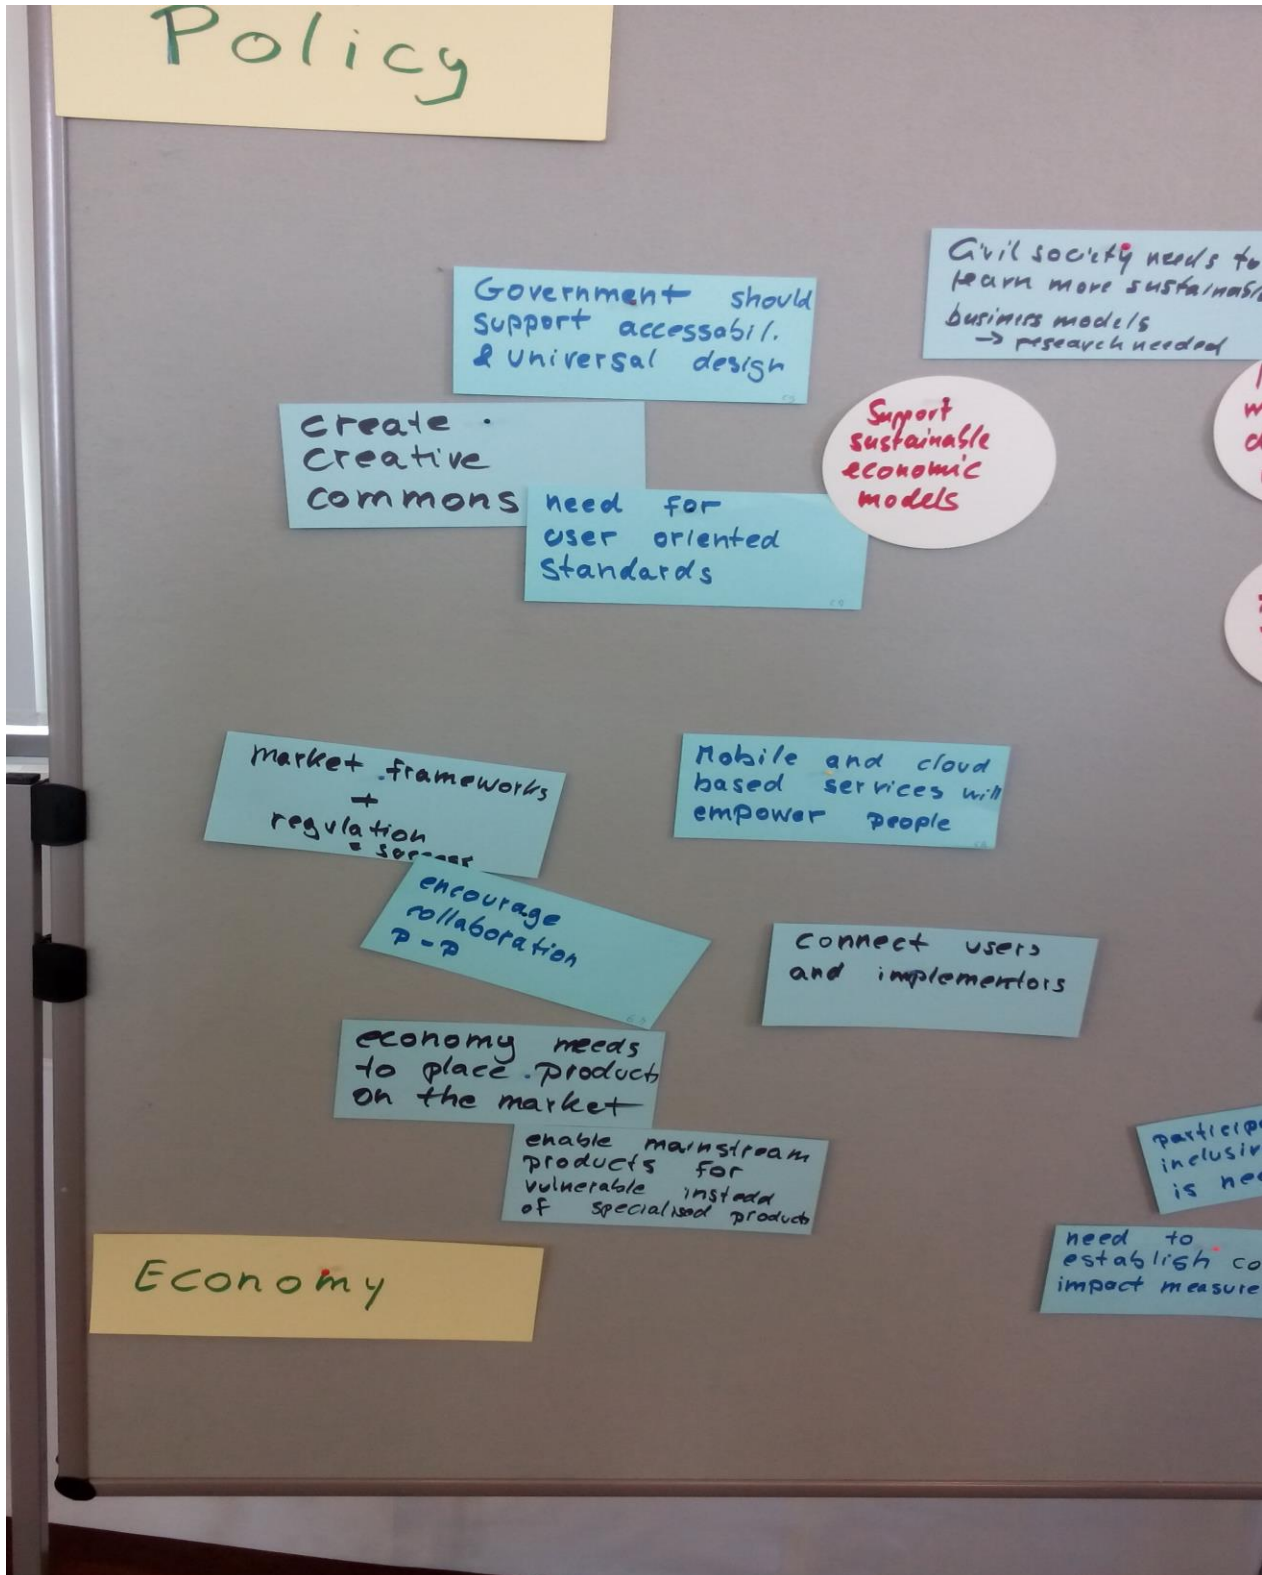 Policy
Government should
support accessabil.
& universal design
Civil society needs to
learn more sustainabl
business models
→ research needed
create
creative
commons
Support
sustainable
economic
models
need for
user oriented
standards
market frameworks
+
regulation
= success
Mobile and cloud
based services will
empower people
encourage
collaboration
P-P
connect users
and implementors
economy needs
to place products
on the market
enable mainstream
products for
vulnerable instead
of specialised products
particip
inclusiv
is nee
need to
establish co
impact measure
Economy